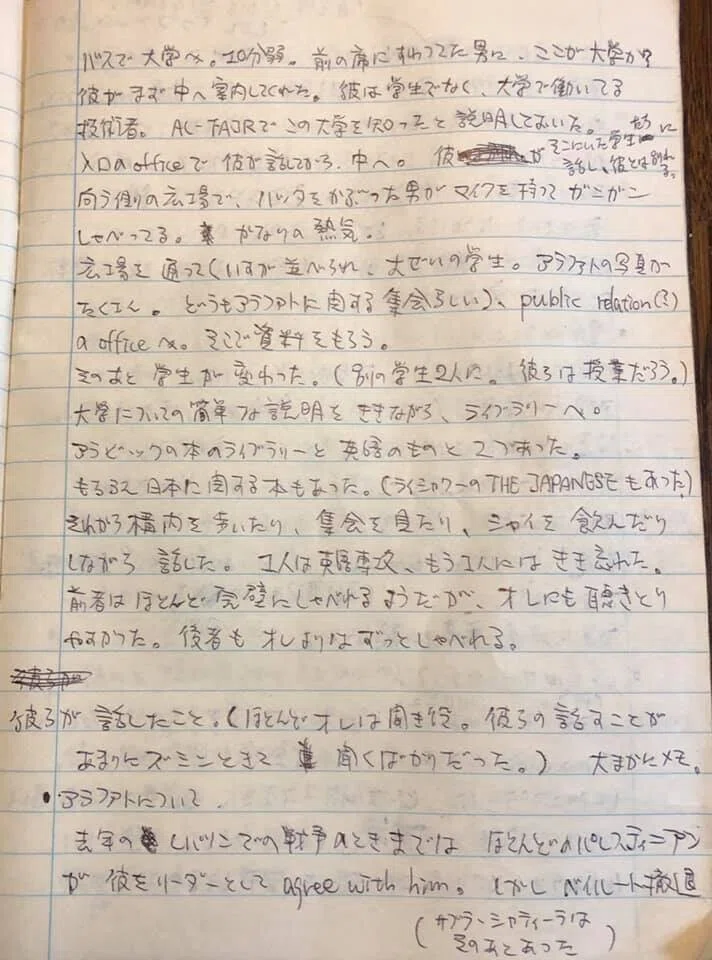 バスで大学へ。10分弱。前の席にすわってた男に、ここが大学か?
彼がまず中へ案内してくれた。彼は学生でなく、大学で働いてる
技術者。AL-FAJRでこの大学を知ったと説明しておいた。
入口のofficeで彼が話してから、中へ。彼がそこにいた学生たちに
話し、彼とは別れる。
向う側の広場で、ハッタをかぶった男がマイクを持ってガンガン
しゃべってる。かなりの熱気。
広場を通って(いすが並べられ、大ぜいの学生。アラファトの写真が
たくさん。どうもアラファトに関する集会らしい)、public relation(?)
のofficeへ。そこで資料をもらう。
そのあと学生が変わった。(別の学生2人に。彼らは授業だろう。)
大学についての簡単な説明をききながら、ライブラリーへ。
アラビックの本のライブラリーと英語のものと2つあった。
もちろん日本に関する本もあった。(ライシャワーのTHE JAPANESEもあった)
それから構内を歩いたり、集会を見たり、シャイを飲んだり
しながら話した。1人は英語専攻、もう1人にはきき忘れた。
前者はほとんど完璧にしゃべれるようだが、オレにも聴きとり
やすかった。後者もオレよりはずっとしゃべれる。
彼らが話したこと。(ほとんどオレは聞き役。彼らの話すことが
あまりにズシンときて聞くばかりだった。) 大まかにメモ。
・アラファトについて.
去年のレバノンでの戦争のときまでは ほとんどのパレスティニアン
が彼をリーダーとしてagree with him。しかしベイルート撤退
(サブラ・シャティーラは
そのあとあった)